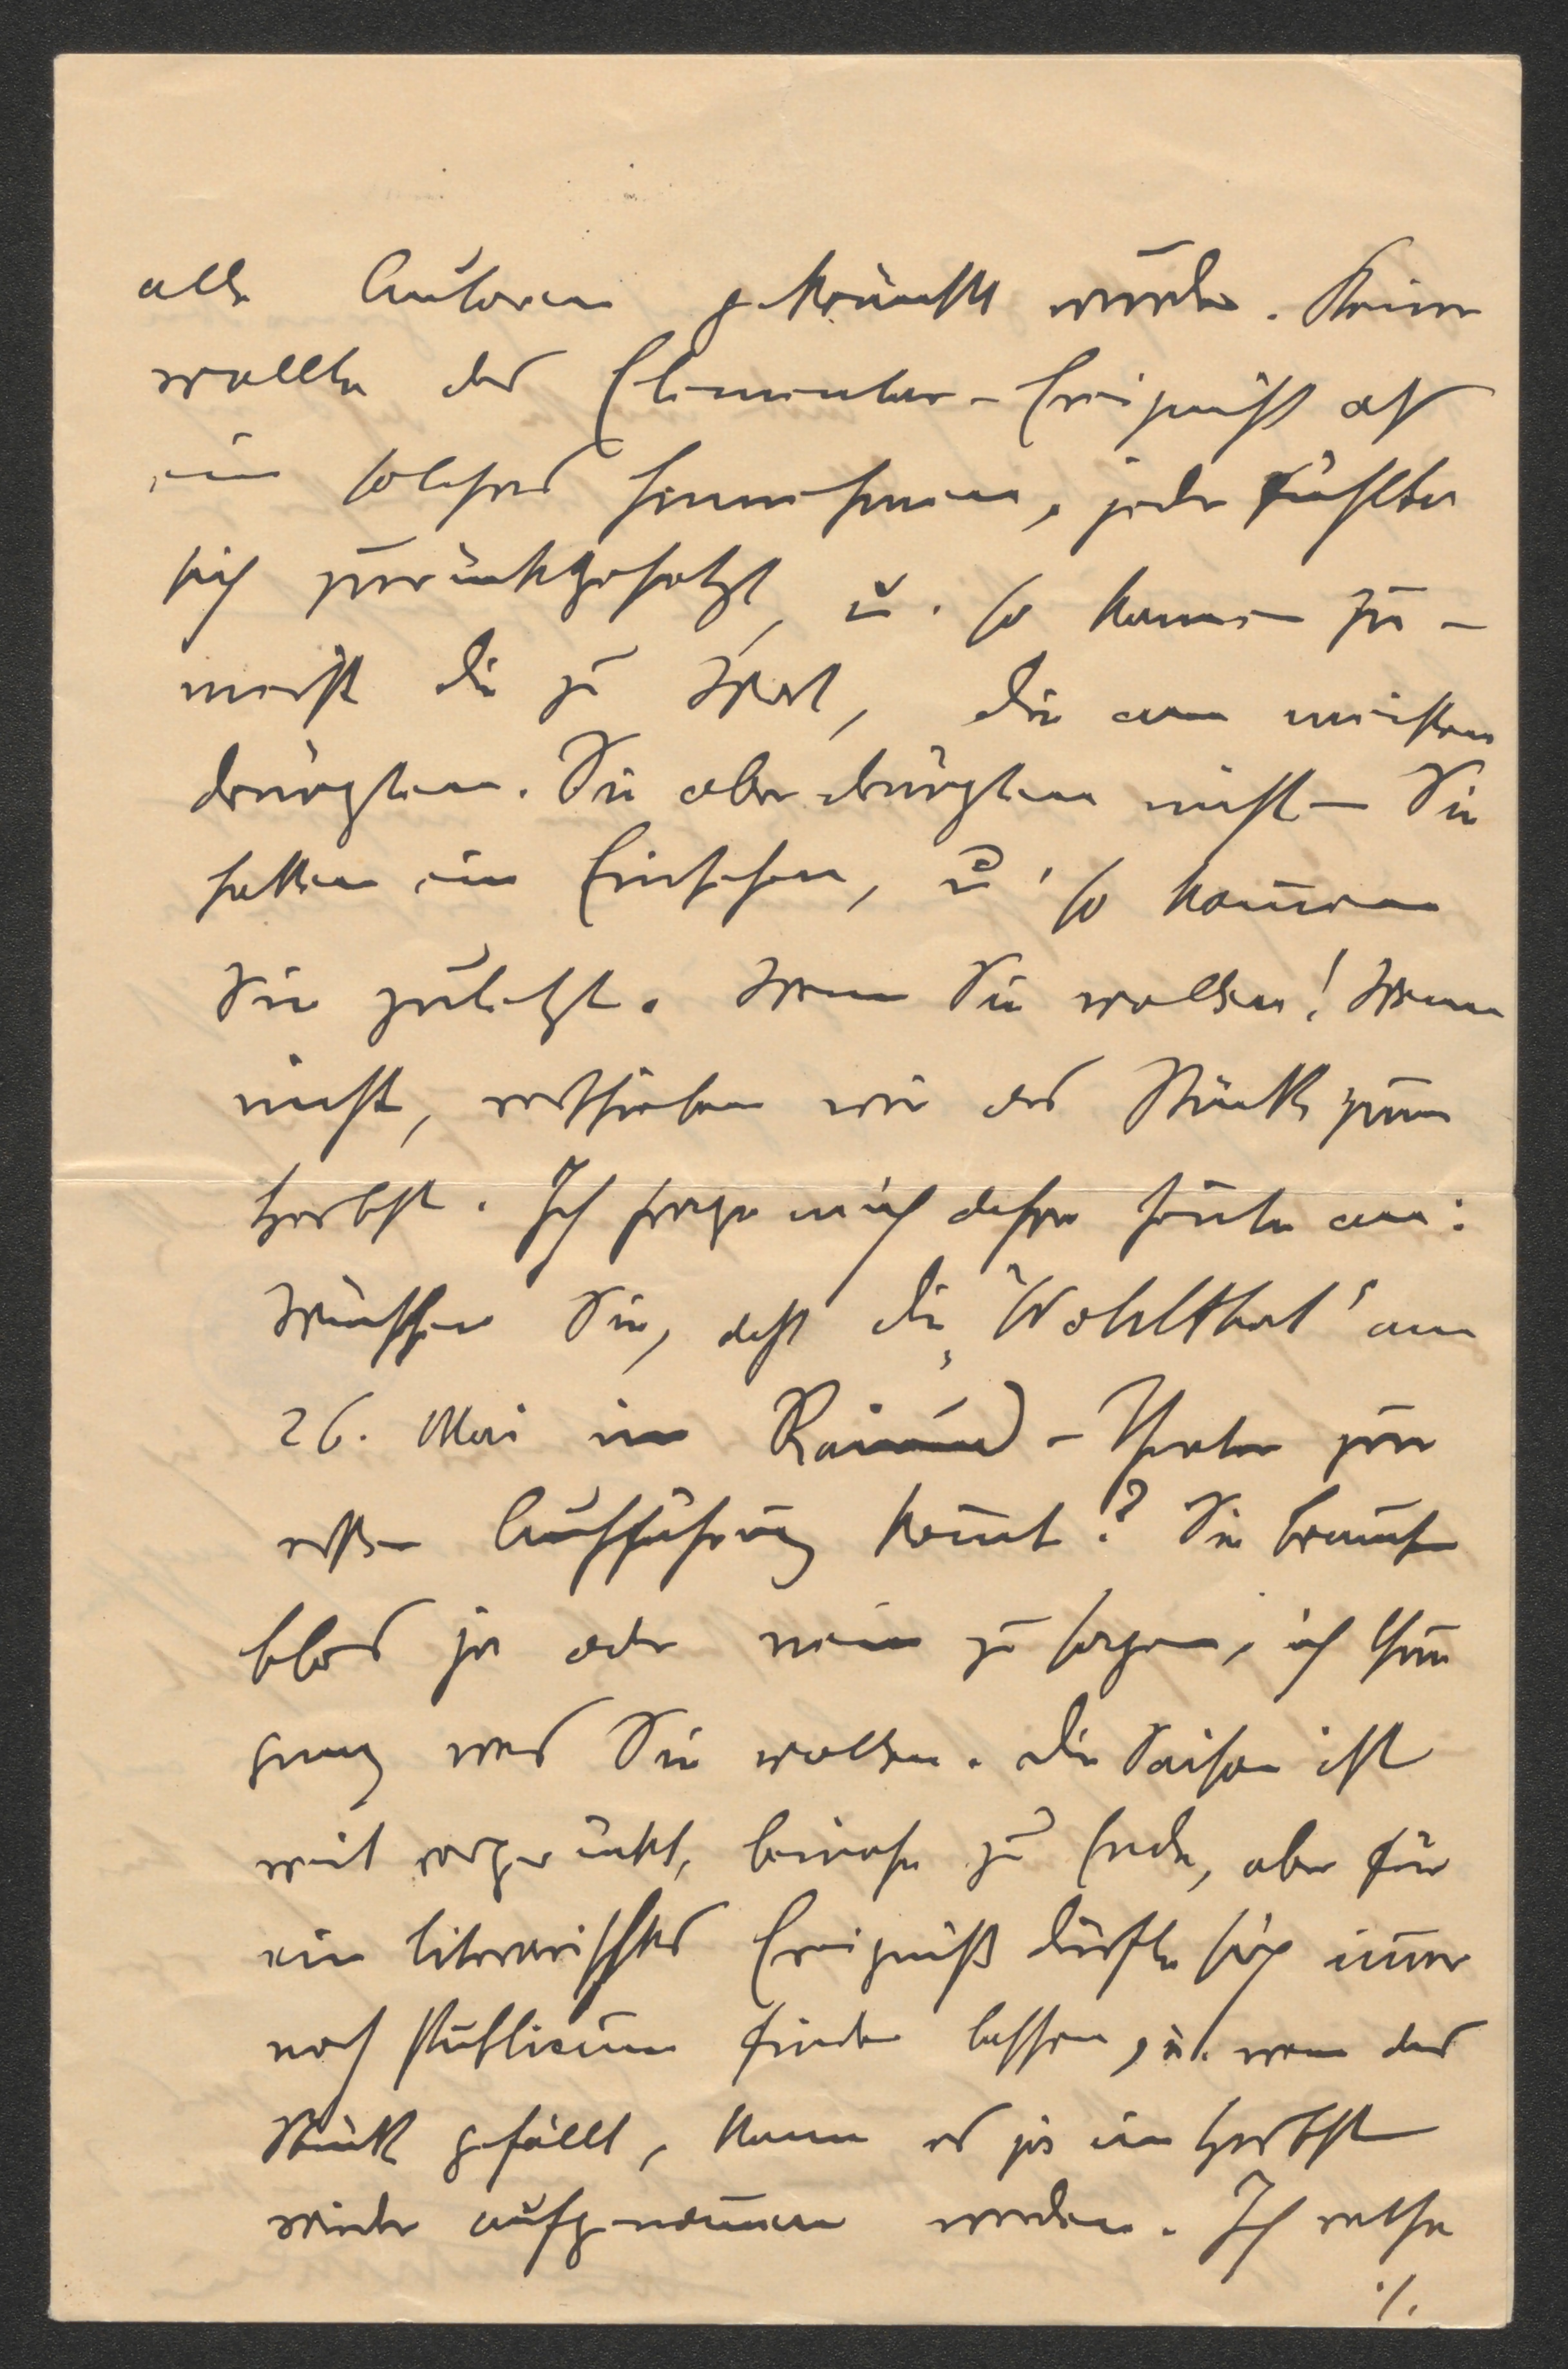 alle Autoren gekränkt wurden. Keiner
wollte das Elementar-Ereigniß als
ein solches hinnehmen, jeder fühlte
sich zurückgesetzt, u. so kamen zu-
meist die zu Wort, die am meisten
drängten. Sie aber drängten nicht – Sie
hatten ein Einsehen, u. so kommen
Sie zuletzt. Wenn Sie wollen! Wenn
nicht, verschieben wir das Stück zum
Herbst. Ich frage mich daher heute an:
Wünschen Sie, daß die „Wohlthat" am
26. Mai im Raimund-Theater zur
ersten Aufführung kommt? Sie brauchen
blos ja oder nein zu sagen, ich thue
ganz was Sie wollen. Die Saison ist
weit vorgerückt, beinahe zu Ende, aber für
ein literarisches Ereigniß dürfte sich immer
noch Publicum finden lassen, u. wenn das
Stück gefällt, kann es ja im Herbst
wieder aufgenommen werden. Ich rathe
./.